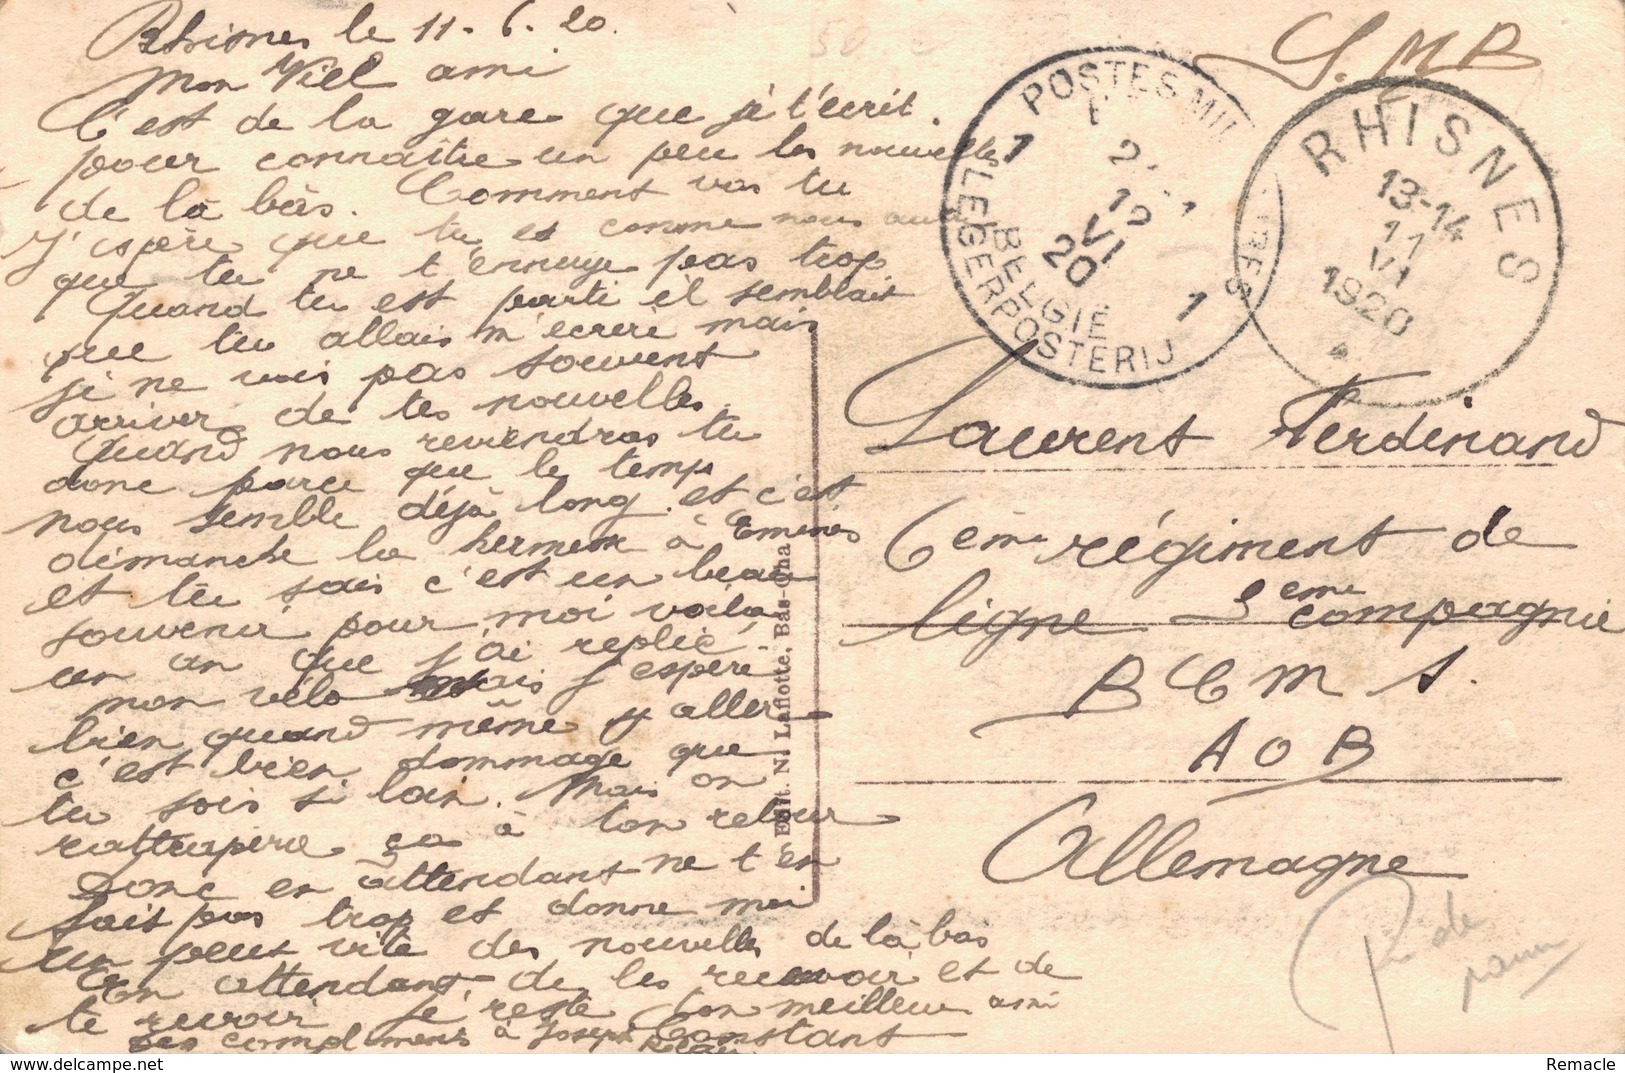 Rhisnes le 11-6-20.
Mon Viel ami
C'est de la gare que je t'ecrit.
pour connaître un peu les nouvelles
de la bàs. Comment vas tu
J'espère que tu es comme nous aussi
que tu ne t'ennuye pas trop
Quand tu est parti il semblait
que tu allais m'ecrire mais
je ne vois pas souvent
arriver de tes nouvelles.
Quand nous reviendras tu
donc parce que le temps
nous semble déjà long. et c'est
dimanche la kermesse à Emines
et tu sais c'est un beau
souvenir pour moi voila
un an que j'ai replié
mon vélo mais j'espère
bien quand même y aller
c'est bien dommage que
tu sois si loin. Mais on
rattrapera ça à ton retour
Donc en attendant ne t'en
fait pas trop et donne moi
un peu vite des nouvelles de là bas
En attendant de les recevoir et de
te revoir je reste ton meilleur ami
Constant
Des compliments à Joseph
S.M.B
POSTES MILITAIRES
BELGIE
LEGERPOSTERIJ
1 1
12
VI
20
RHISNES
13-14
11
VI
1920
Laurent Ferdinand
6ème régiment de
ligne 3eme compagnie
B C M 1.
A O B
Allemagne
Edit. N. Laflotte, Bas-Oha
delcampe.net
Remacle